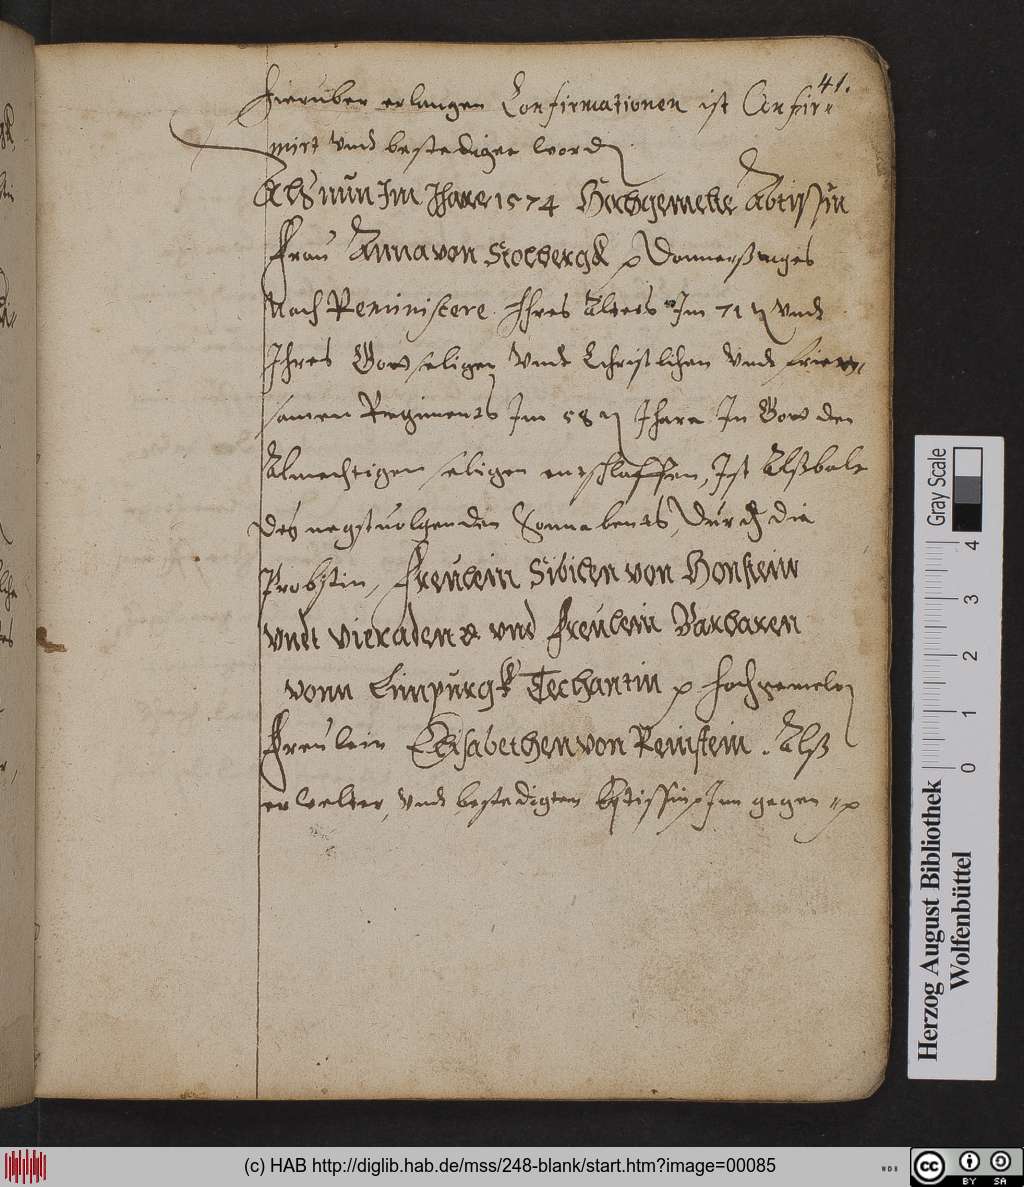 41.
Hieruber erlangen Confirmationen ist Confir=
mirt vnd bestediget word
Als nun Im Jhare 1574 Hochgemelte Abtissin
Frau Anna von Stolbergk p Donnerstages
Nach Reminiscere Ihres Alters Im 71 vnd
Ihres Gottseligen vnd Christlichen vnd fried=
samen Regiments Im 58 Jhare In Gott den
Almechtigen seligen entschlaffen, Ist Alßbalt
des negstuolgenden Sonnabents, durch die
Probstin, Freulein Sibilen von Honstein
vndt Vieraden vnd Freulein Barbaren
vonn Limpurgk Techantin p hochgemelte
Freulein Elisabethen von Reinstein. Alß
erwelter, vnd bestedigten Ebtissin Im gegen
Herzog August Bibliothek
Wolfenbüttel
Gray Scale
0 1 2 3 4
(c) HAB http://diglib.hab.de/mss/248-blank/start.htm?image=00085
WDB
cc BY SA